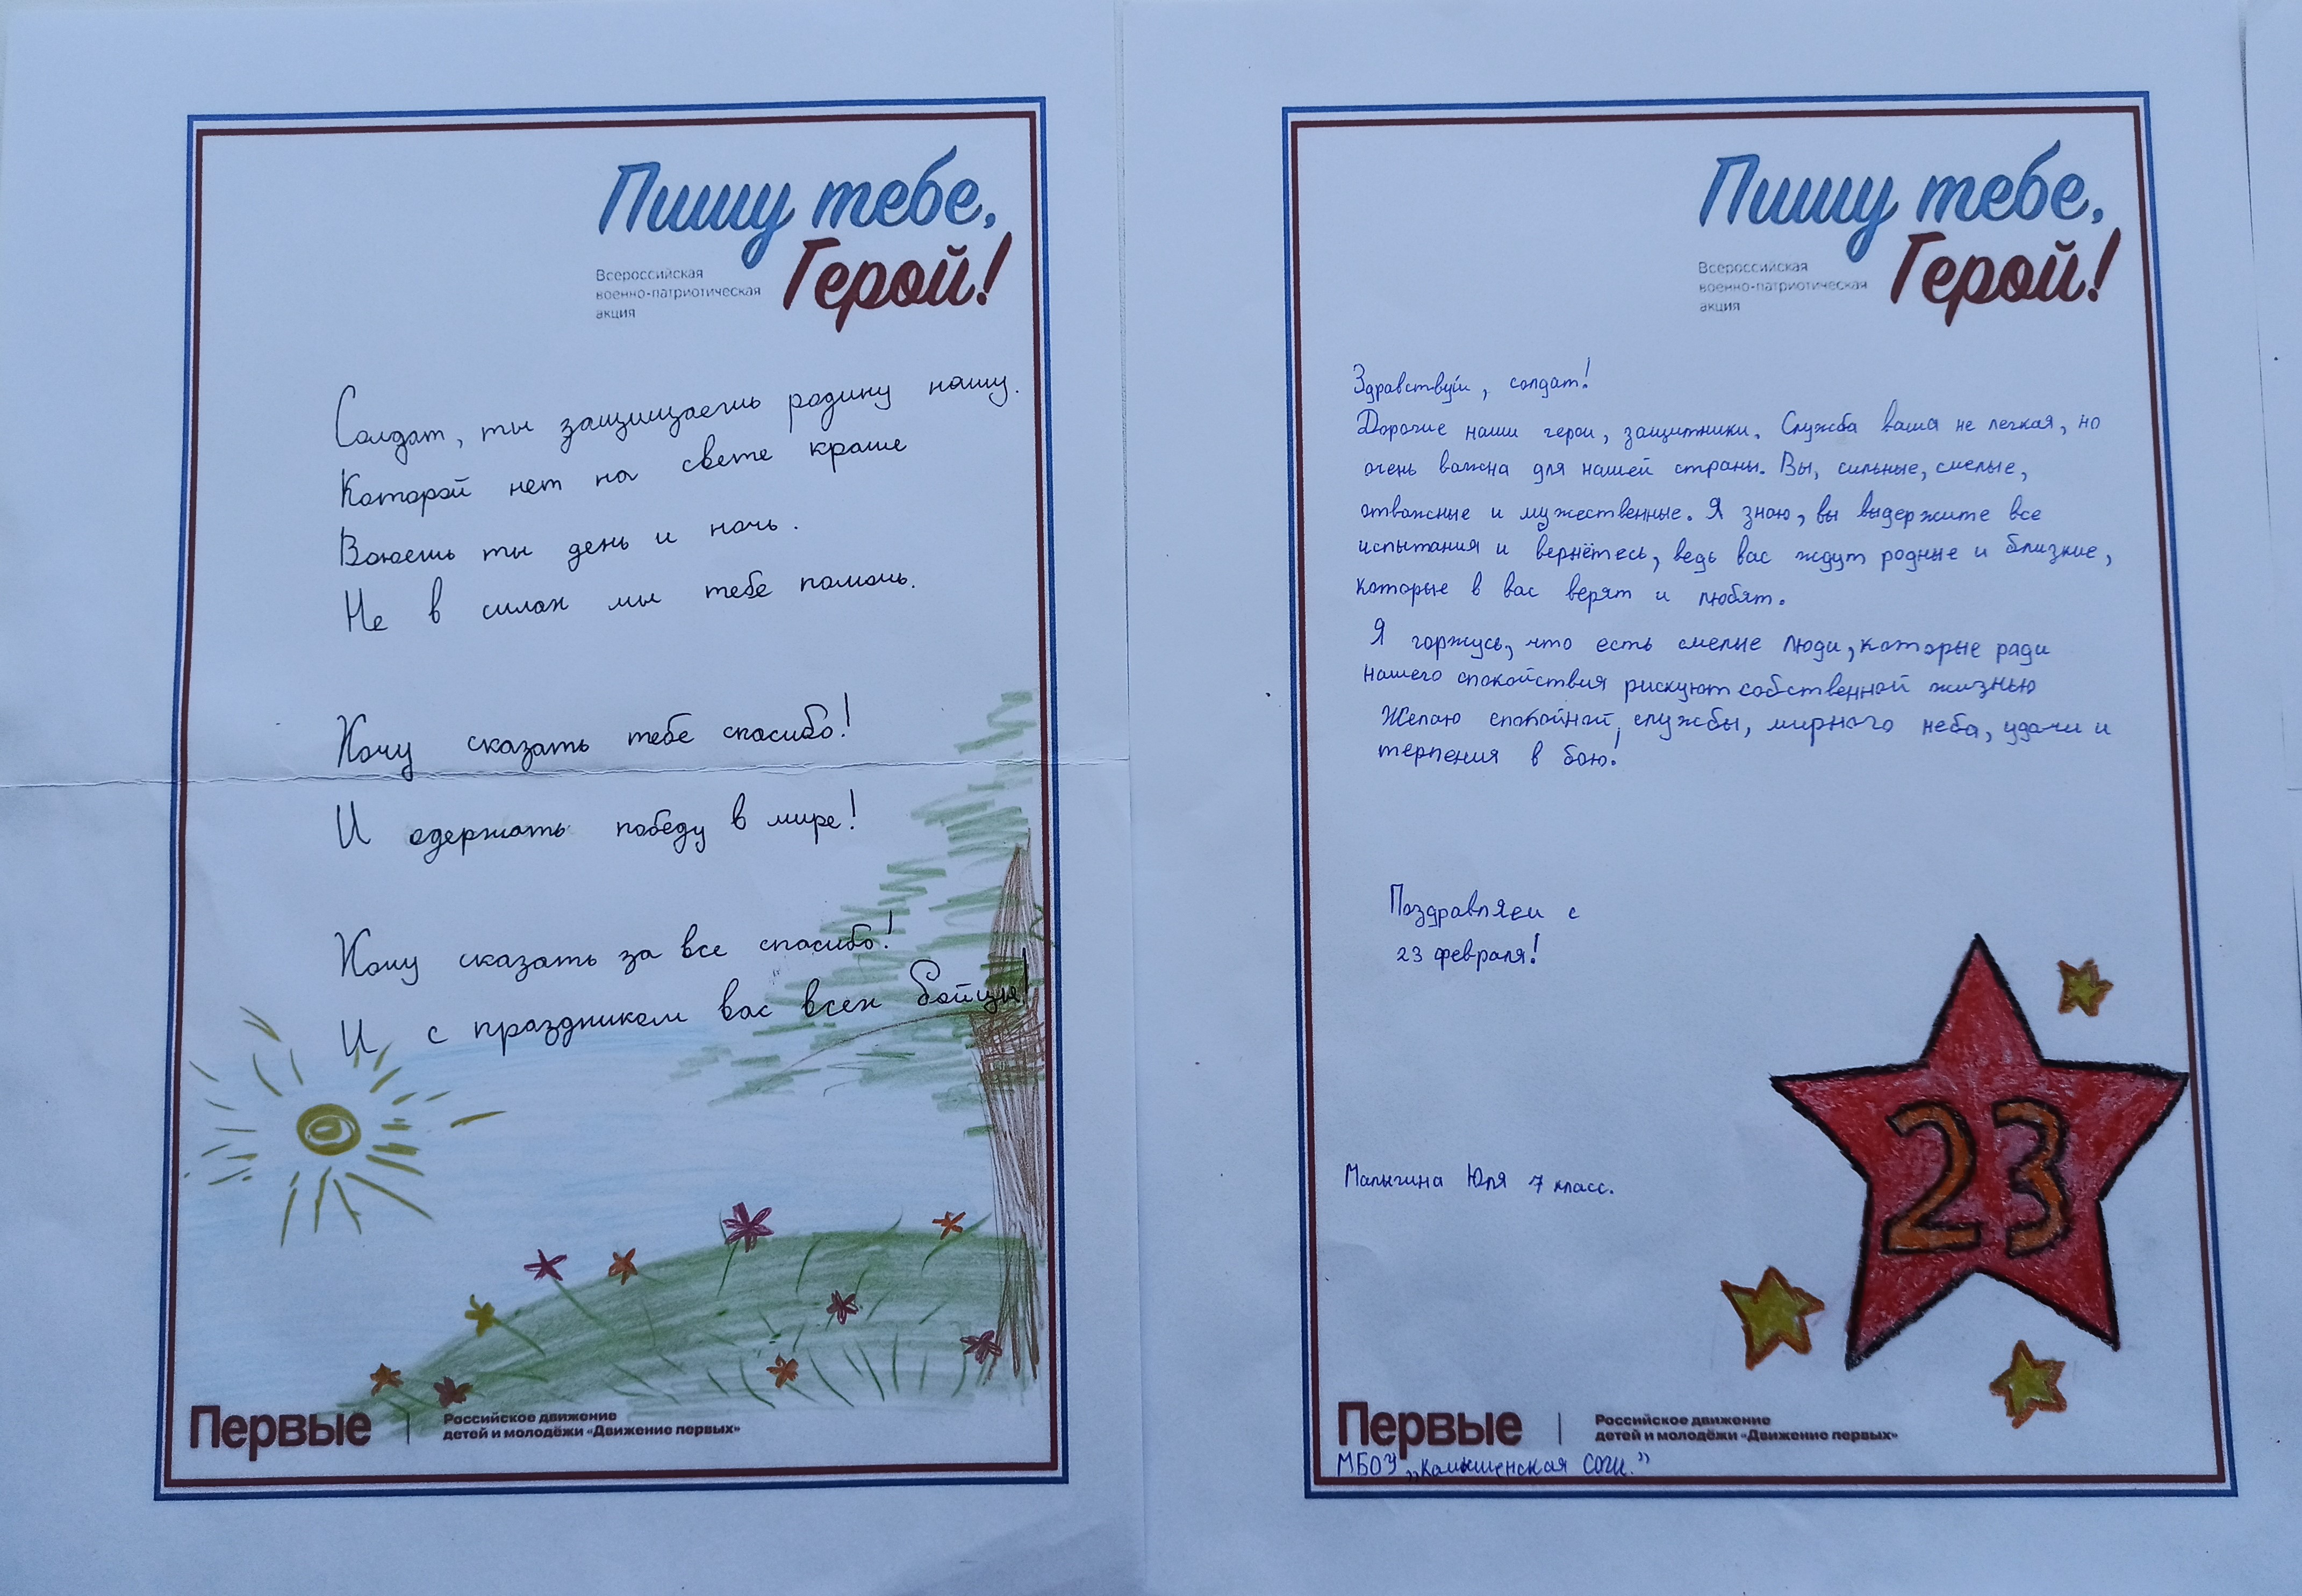 Пишу тебе,
Герой!
Всероссийская
военно-патриотическая
акция
Солдат, ты защищаешь родину нашу.
Которой нет на свете краше
Воюешь ты день и ночь.
Не в силах мы тебе помочь.
Хочу сказать тебе спасибо!
И одержать победу в мире!
Хочу сказать за все спасибо!
И с праздником вас всех бойцы!
Первые
Российское движение
детей и молодёжи «Движение первых»
Пишу тебе,
Герой!
Всероссийская
военно-патриотическая
акция
Здравствуй, солдат!
Дорогие наши герои, защитники. Служба ваша не легкая, но
очень важна для нашей страны. Вы, сильные, смелые,
отважные и мужественные. Я знаю, вы выдержите все
испытания и вернётесь, ведь вас ждут родные и близкие,
которые в вас верят и любят.
Я горжусь, что есть смелые люди, которые ради
нашего спокойствия рискуют собственной жизнью
Желаю спокойной, службы, мирного неба, удачи и
терпения в бою!
Поздравляем с
23 февраля!
23
Малыгина Юля 7 класс.
Первые
Российское движение
детей и молодёжи «Движение первых»
МБОУ „Камышенская СОШ."